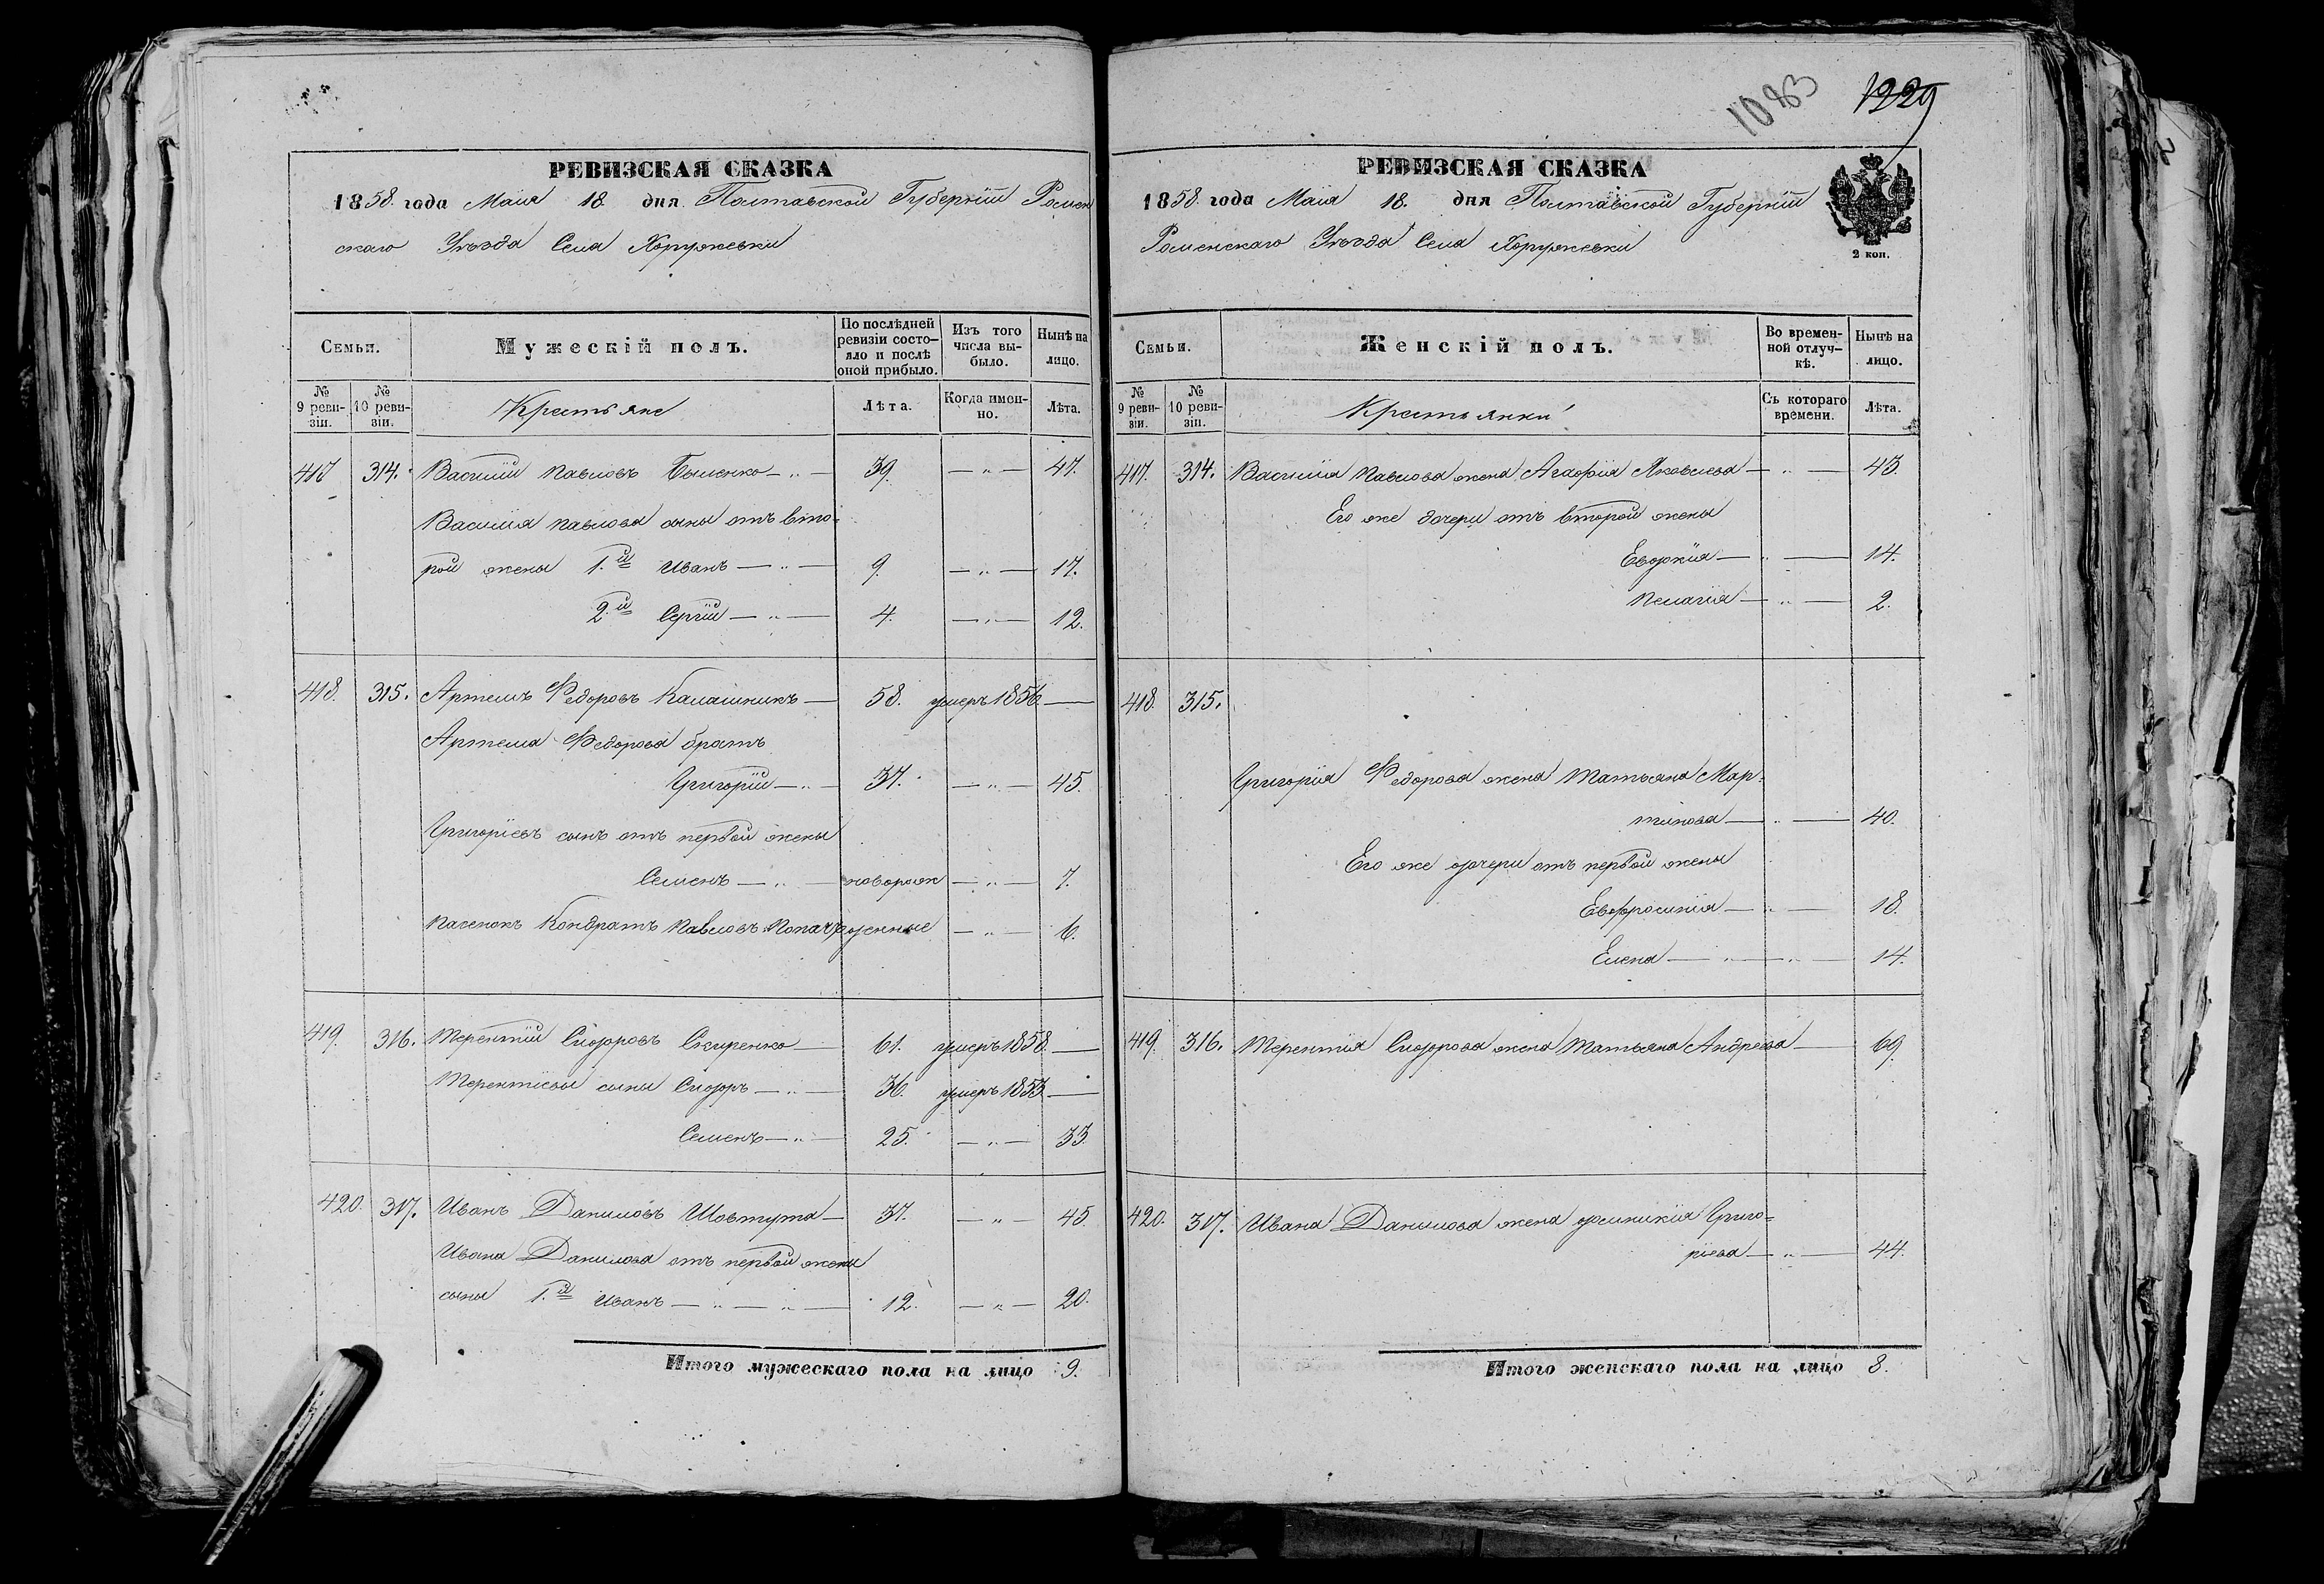 РЕВИЗСКАЯ СКАЗКА
1858. года Маія 18. дня Полтавской Губерніи Ромен
скаго Уѣзда Села Хоружевки
Семьи.
Мужескій полъ.
По послѣдней ревизіи состо-яло и послѣ оной прибыло.
Изъ того числа вы-было.
Нынѣ на лицо.
№ 9 реви-зіи.
№ 10 реви-зіи.
Крестьяне
Лѣта.
Когда имен-но.
Лѣта.
417 314. Василій Павловъ Быленко — „ — 39. — „ — 47.
Василія Павлова сыны отъ вто-
рой жены 1.й Иванъ — „ — 9. — „ — 17.
2.й Сергій — „ — 4. — „ — 12.
418. 315. Артемъ Федоровъ Калашникъ — 58. умеръ 1856 —
Артема Федорова братъ
Григорій — „ — 37. — „ — 45.
Григоріевъ сынъ отъ первой жены
Семенъ — „ — новорож — „ — 7.
Пасенокъ Кондратъ Павловъ — „ — 6.
419. 316. Терентій Сидоровъ Скиренко — 61. умеръ 1858. —
Терентіевы сыны Сидоръ — „ — 36. умеръ 1853 —
Семенъ — „ — 25. — „ — 33.
420. 317. Иванъ Даниловъ Шовтута — 37. — „ — 45.
Ивана Данилова отъ первой жены
сыны 1.й Иванъ — „ — „ — 12. — „ — 20.
Итого мужескаго пола на лицо 9.
1083 1229
РЕВИЗСКАЯ СКАЗКА
1858. года Маія 18. дня Полтавской Губерніи
Роменскаго Уѣзда Села Хоружевки
2 коп.
Семьи.
Женскій полъ.
Во времен-ной отлуч-кѣ.
Нынѣ на лицо.
№ 9 реви-зіи.
№ 10 реви-зіи.
Крестьянки
Съ котораго времени.
Лѣта.
417. 314. Василія Павлова жена Агафія Яковлева — „ — 43.
Его же дочери отъ второй жены
Евдокія — „ — 14.
Пелагія — „ — 2.
418. 315.
Григорія Федорова жена Татьяна Мар-
тинова — „ — 40.
Его же дочери отъ первой жены
Евфросинія — „ — 18.
Елена — „ — „ — 14.
419. 316. Терентія Сидорова жена Татьяна Андрѣева — 69.
420. 317. Ивана Данилова жена Григо-
ріева — „ — 44.
Итого женскаго пола на лицо 8.